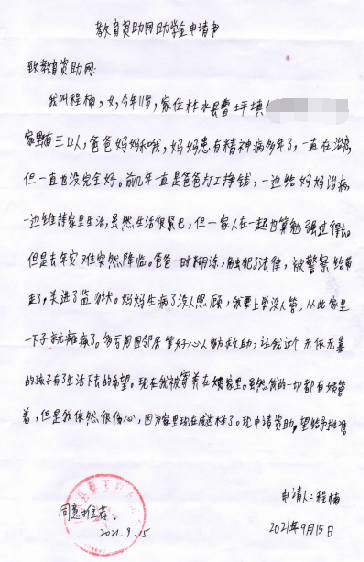 教育资助网助学金申请书
致教育资助网:
我叫程楠,女,今年11岁,家住林水县曹坪镇
家里有三口人,爸爸妈妈和我,妈妈患有精神病多年了,一直在治疗
但一直也没完全好。前几年一直是爸爸打工挣钱,一边给妈妈治病,
一边维持家里生活,虽然生活很累,但一家人在一起也算勉强过得去
但是去年灾难突然降临。爸爸一时糊涂,触犯了法律,被警察给带
走了。关进了监狱。妈妈生病了没人照顾,我要上学没人管,从此家里
一下子就瘫痪了。多亏周围邻居好心人帮忙救助,让我这个无依无靠
的孩子有了生活下去的希望。现在我被寄养在姨家里。虽然我的一切都有姨管
着,但是我依然很伤心,因为家里现在成这样了。现申请资助。望给予批准
申请人:程楠
同意推荐。
2021.9.15
2021年9月15日